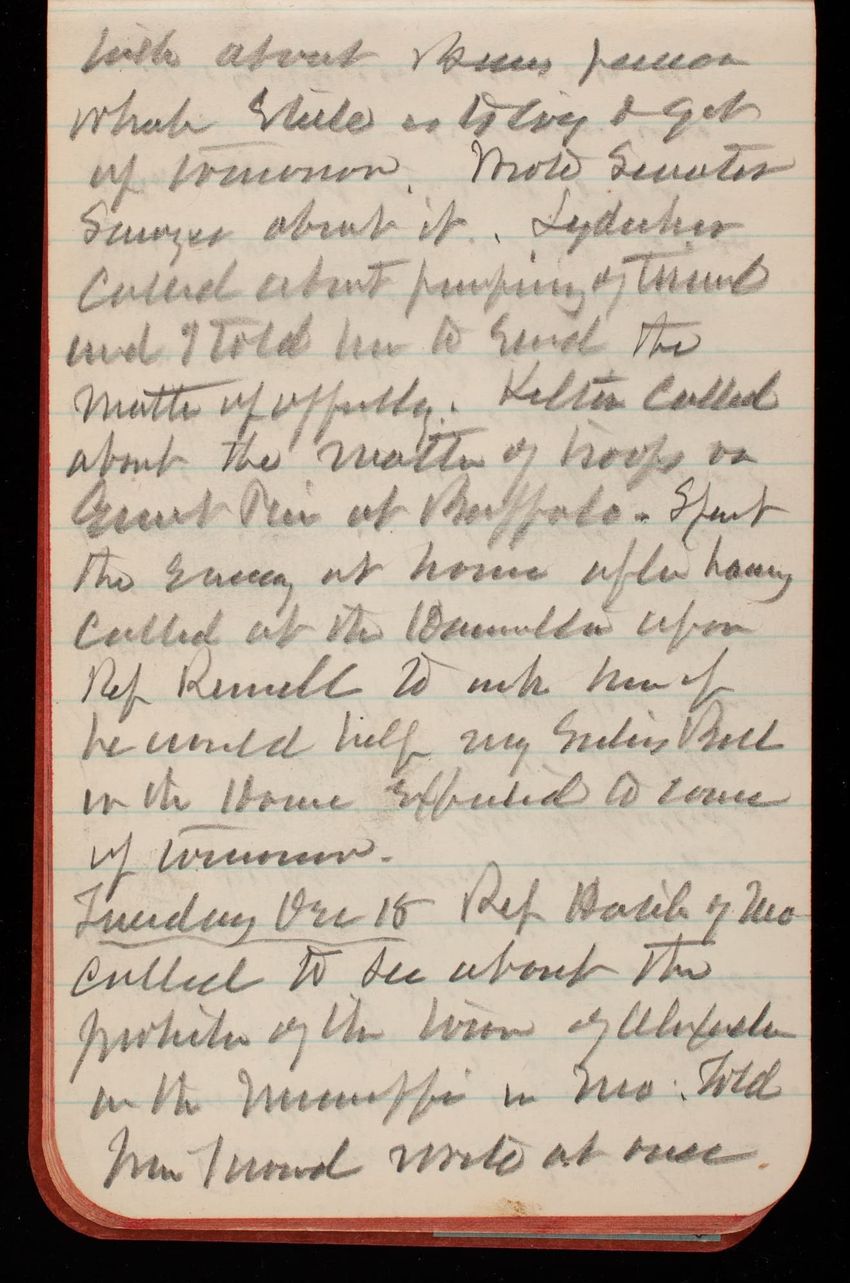 talk about
what Steele is to try & get
up tomorrow. Wrote Senator
Sawyer about it. Lydecker
Called about pumping of tunnel
and I told him to send the
matter up officially. Kelton Called
about the matter of troops on
Pier at Buffalo. Spent
the evening at home after having
called at the Hamilton upon
Rep Russell to ask him if
he would help my Bill
in the House Expected to come
up tomorrow.
Tuesday Dec 18 Rep Hatch of Mo
called to see about the
protection of the town of Alexander
on the Mississippi in Mo. Told
him I would write at once